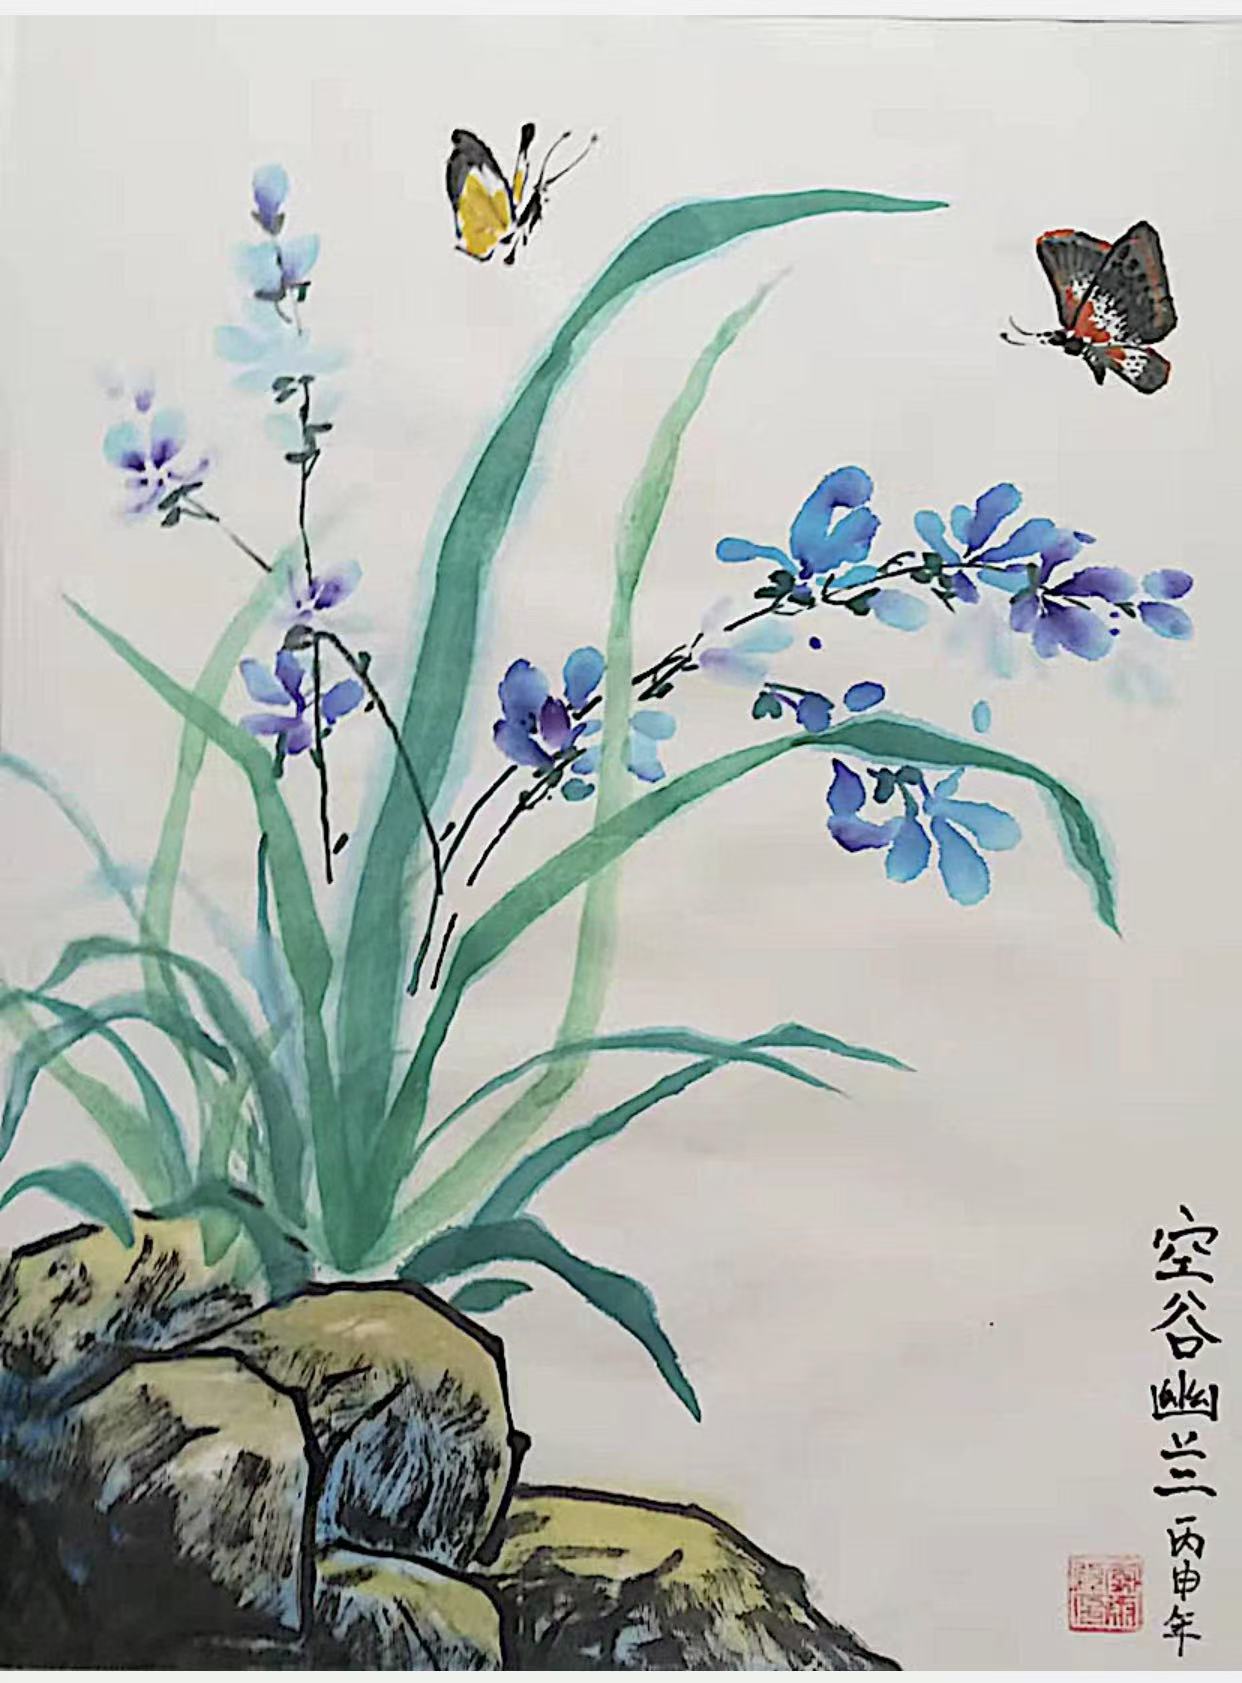 空谷幽兰
丙申年